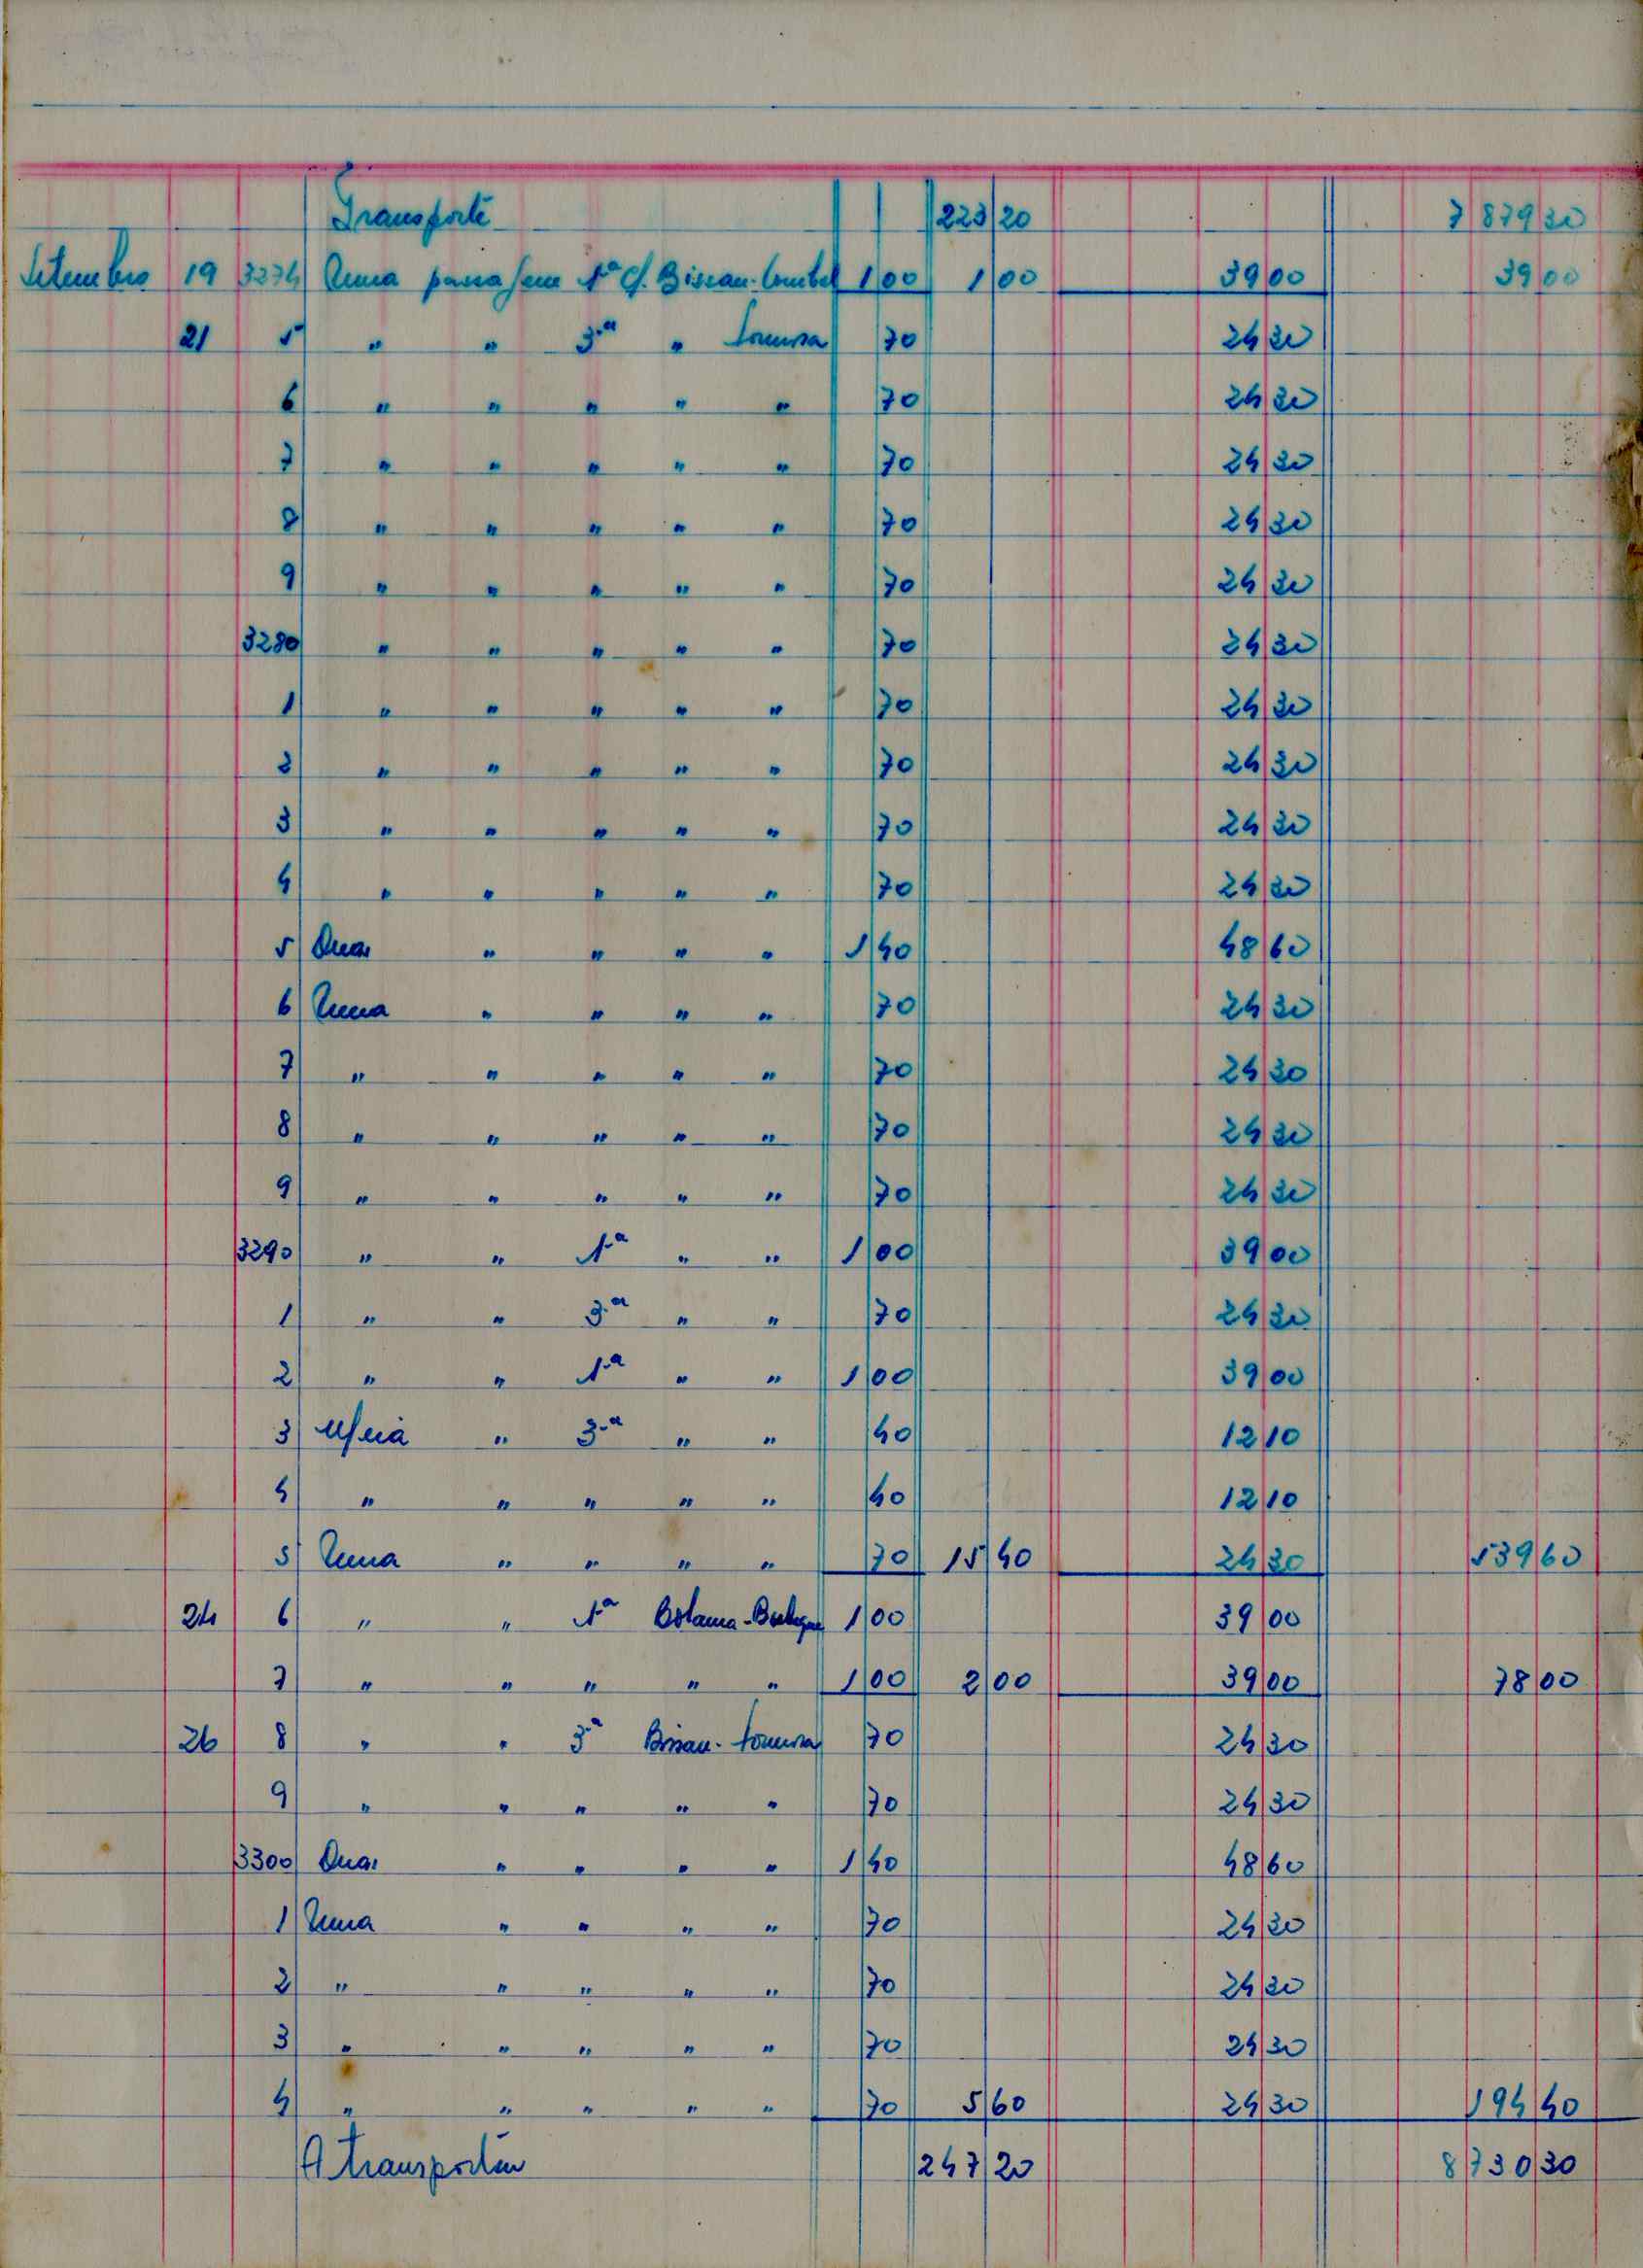 Transporte 223 20 7 879 30
Setembro 19 3274 Uma passagem 1ª cl. Bissau- 1 00 1 00 39 00 39 00
21 5 " " 3ª " 70 24 30
6 " " " " " 70 24 30
7 " " " " " 70 24 30
8 " " " " " 70 24 30
9 " " " " " 70 24 30
3280 " " " " " 70 24 30
1 " " " " " 70 24 30
2 " " " " " 70 24 30
3 " " " " " 70 24 30
4 " " " " " 70 24 30
5 Duas " " " " 1 40 48 60
6 Uma " " " " 70 24 30
7 " " " " " 70 24 30
8 " " " " " 70 24 30
9 " " " " " 70 24 30
3290 " " 1ª " " 1 00 39 00
1 " " 3ª " " 70 24 30
2 " " 1ª " " 1 00 39 00
3 Meia " 3ª " " 40 12 10
4 " " " " " 40 12 10
5 Uma " " " " 70 15 40 24 30 539 60
24 6 " " 1ª Bolama- 1 00 39 00
7 " " " " " 1 00 2 00 39 00 78 00
26 8 " " 3ª Bissau- 70 24 30
9 " " " " " 70 24 30
3300 Duas " " " " 1 40 48 60
1 Uma " " " " 70 24 30
2 " " " " " 70 24 30
3 " " " " " 70 24 30
4 " " " " " 70 5 60 24 30 194 40
A transportar 247 20 8 730 30